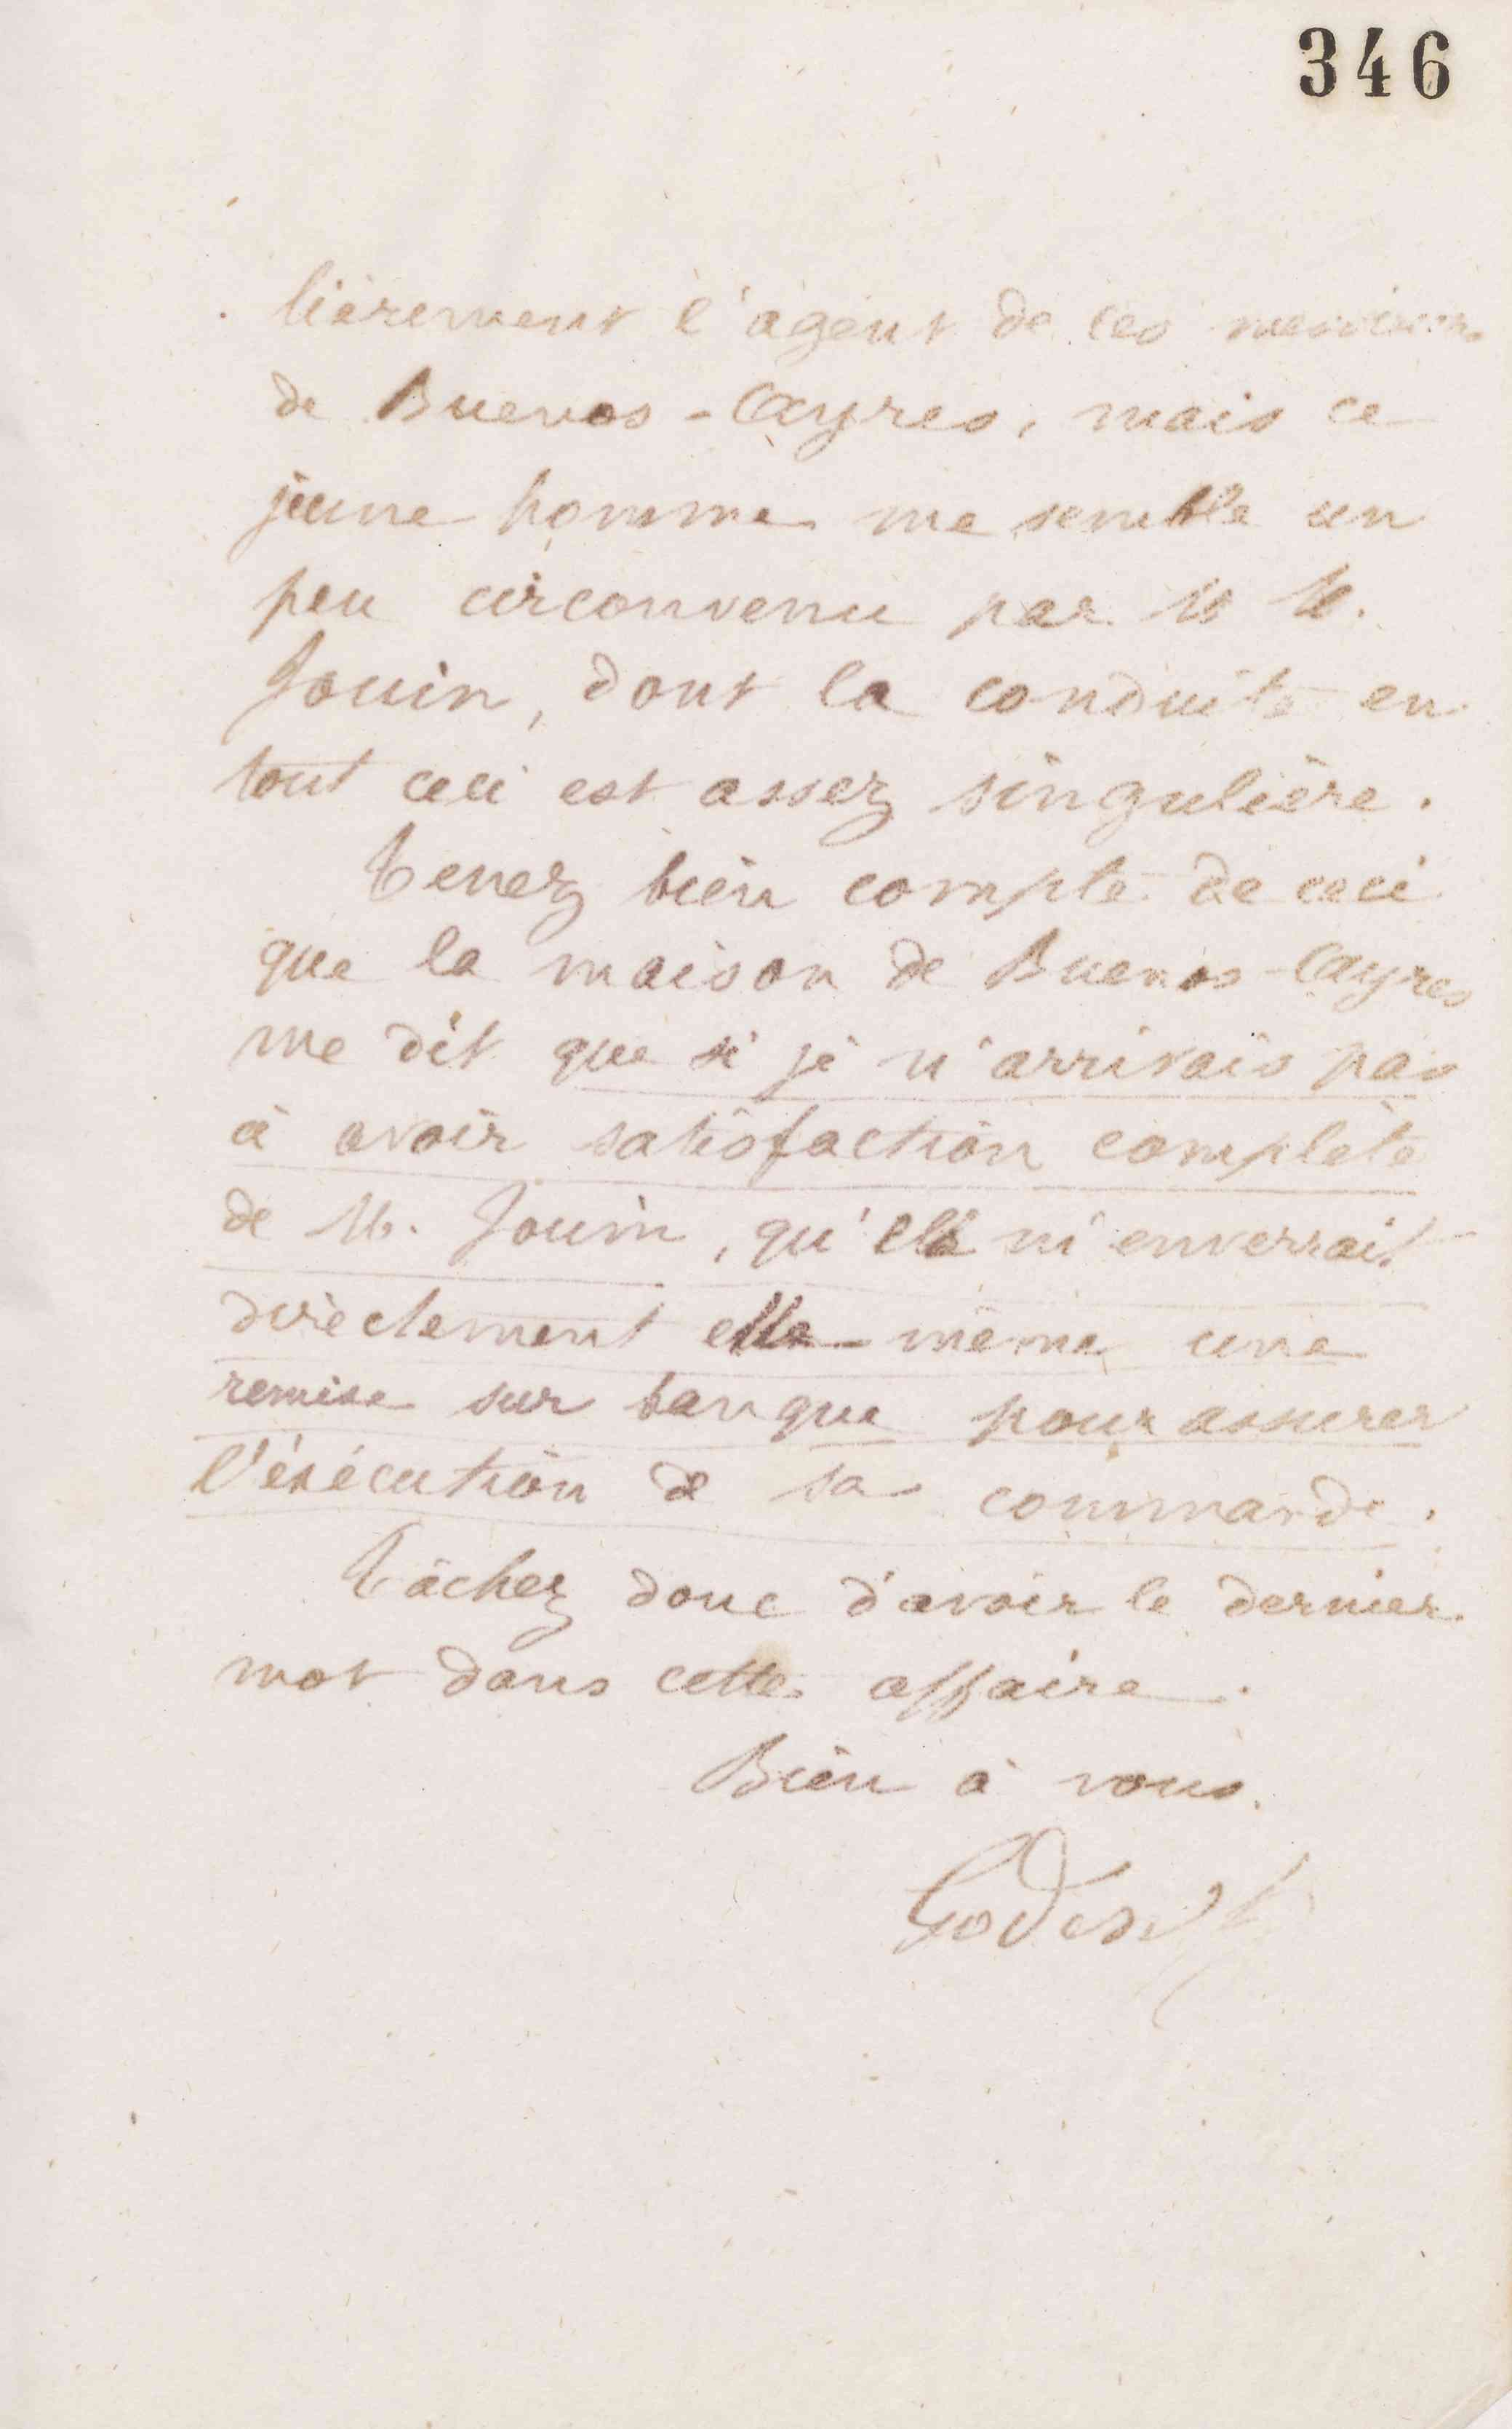 346
lièrement l'agent de ces messieurs
de Buenos-Ayres, mais ce
jeune homme me semble un
peu circonvenu par M.
Jouin, dont la conduite en
tout ceci est assez singulière.
Tenez bien compte de ceci
que la maison de Buenos-Ayres
me dit que si je n'arrivais pas
à avoir satisfaction complète
de M. Jouin, qu'elle m'enverrait
directement elle-même une
remise sur banque pour assurer
l'exécution de sa commande.
Tâchez donc d'avoir le dernier
mot dans cette affaire.
Bien à vous.